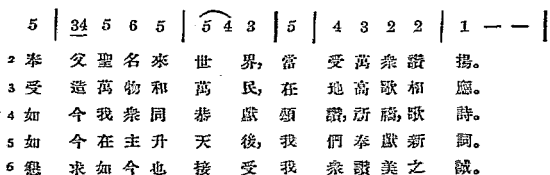 5 | 34 5 6 5 | 5 4 3 | 5 | 4 3 2 2 | 1 — — |
2 奉 父聖名來 世 界, 當 受萬衆讚 揚。
3 受 造萬物和 萬 民, 在 地高歌相 應。
4 如 今我衆同 恭 獻 頌 讚, 所禱, 歌 詩。
5 如 今在主升 天 後, 我 們奉獻新 詞。
6 懇 求如今也 接 受 我 衆讚美之 誠。